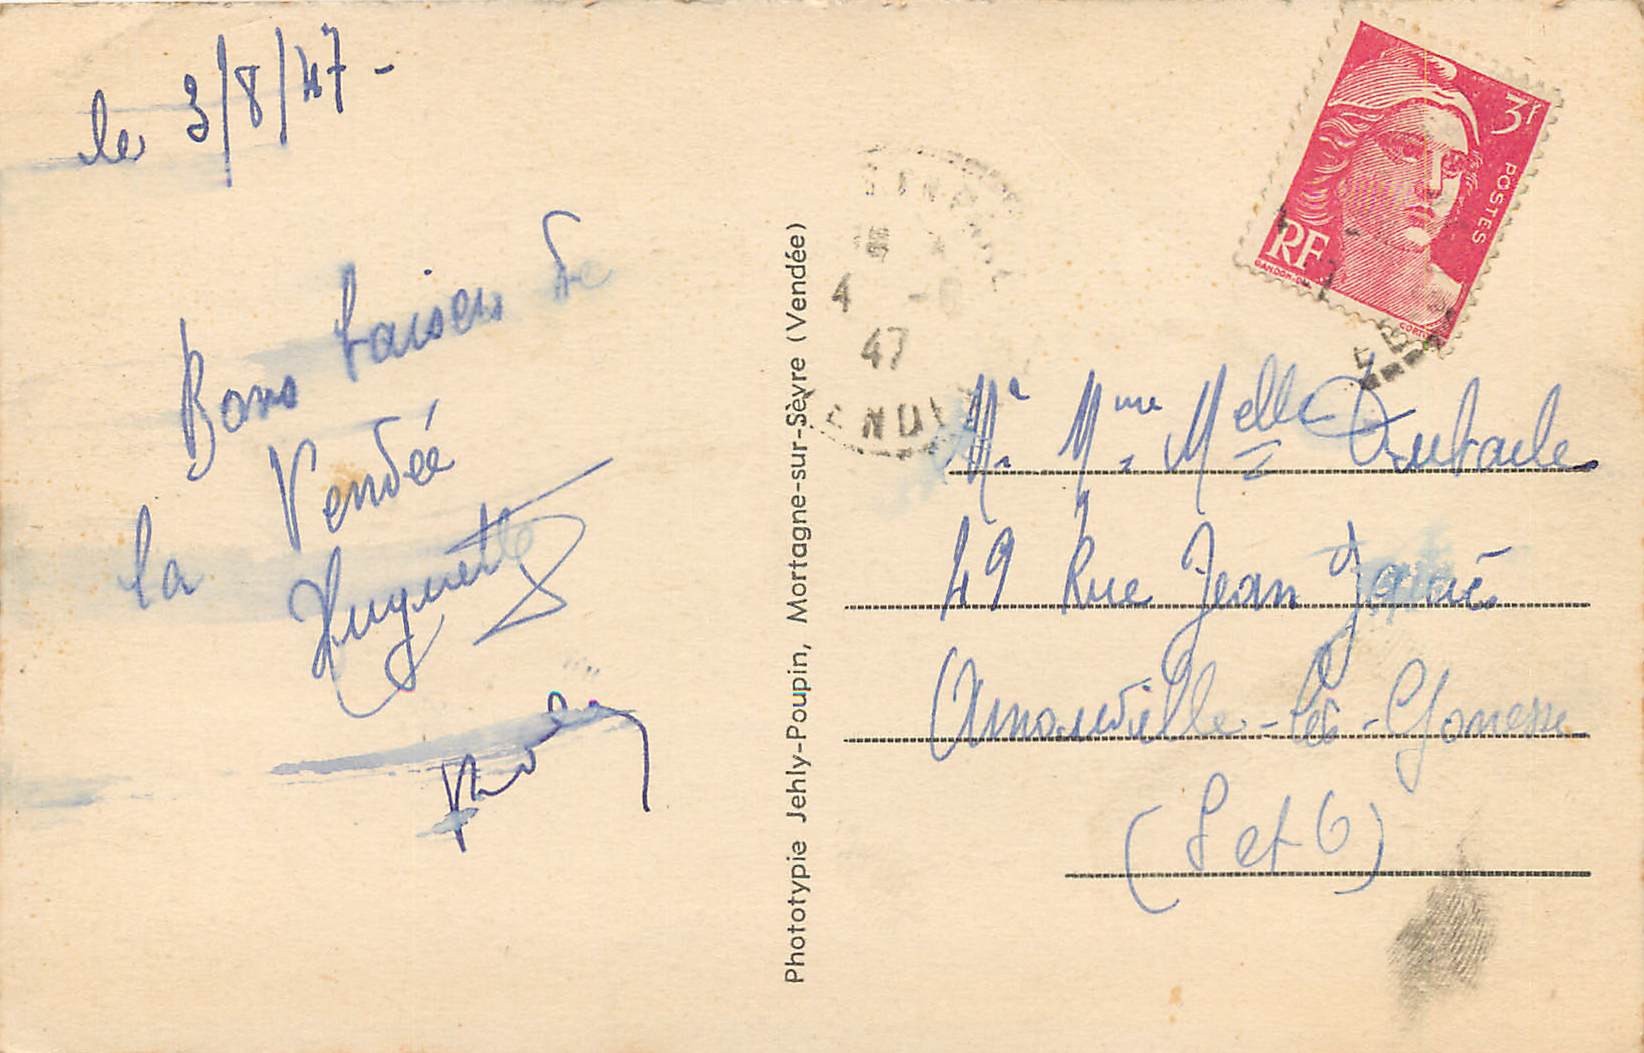 le 3/8/47 -
Bons baisers de
la Vendéé
Huguette
Phototypie Jehly-Poupin, Mortagne-sur-Sèvre (Vendée)
4 -8
47
3f
POSTES
RF
Mr Mme Melle
49 Rue Jean Jaurès
Arnouville-les-Gonesse
(S et O)